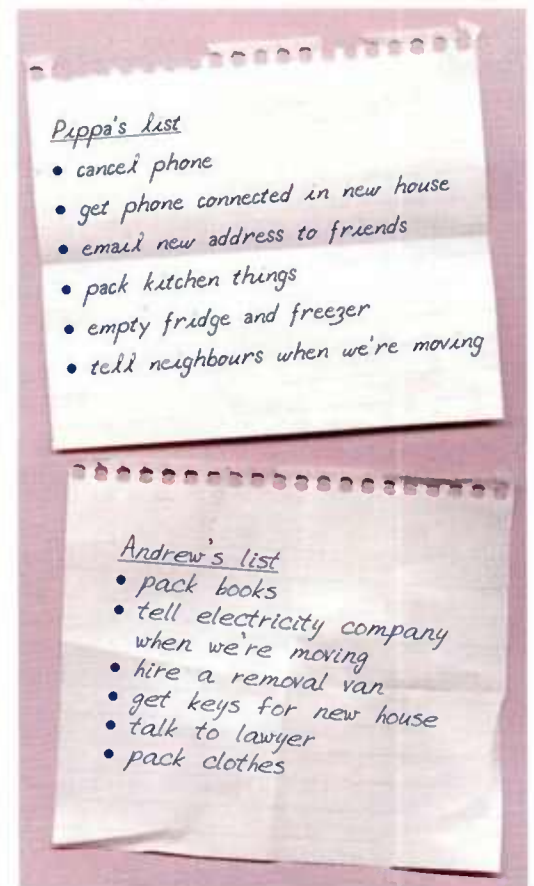 Pippa's list
• cancel phone
• get phone connected in new house
• email new address to friends
• pack kitchen things
• empty fridge and freezer
• tell neighbours when we're moving
Andrew's list
• pack books
• tell electricity company
when we're moving
• hire a removal van
• get keys for new house
• talk to lawyer
• pack clothes